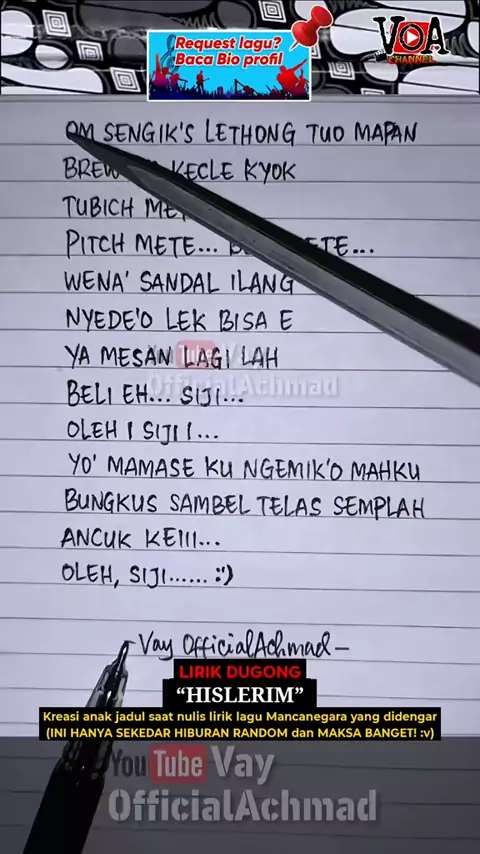 Request lagu?
Baca Bio profil
VOA
CHANNEL
OM SENGIK'S LETHONG TUO MAPAN
KECLE KYOK
TUBICH
PITCH METE...
WENA' SANDAL ILANG
NYEDE'O LEK BISA E
YA MESAN LAGI LAH
YouTube Vay
OfficialAchmad
BELI EH... SIJI...
OLEH I SIJI I...
YO' MAMASE KU NGEMIK'O MAHKU
BUNGKUS SAMBEL TELAS SEMPLAH
ANCUK KEIII...
OLEH, SIJI...... :')
- Vay OfficialAchmad -
LIRIK DUGONG
“HISLERIM”
Kreasi anak jadul saat nulis lirik lagu Mancanegara yang didengar
(INI HANYA SEKEDAR HIBURAN RANDOM dan MAKSA BANGET! :v)
YouTube Vay
OfficialAchmad